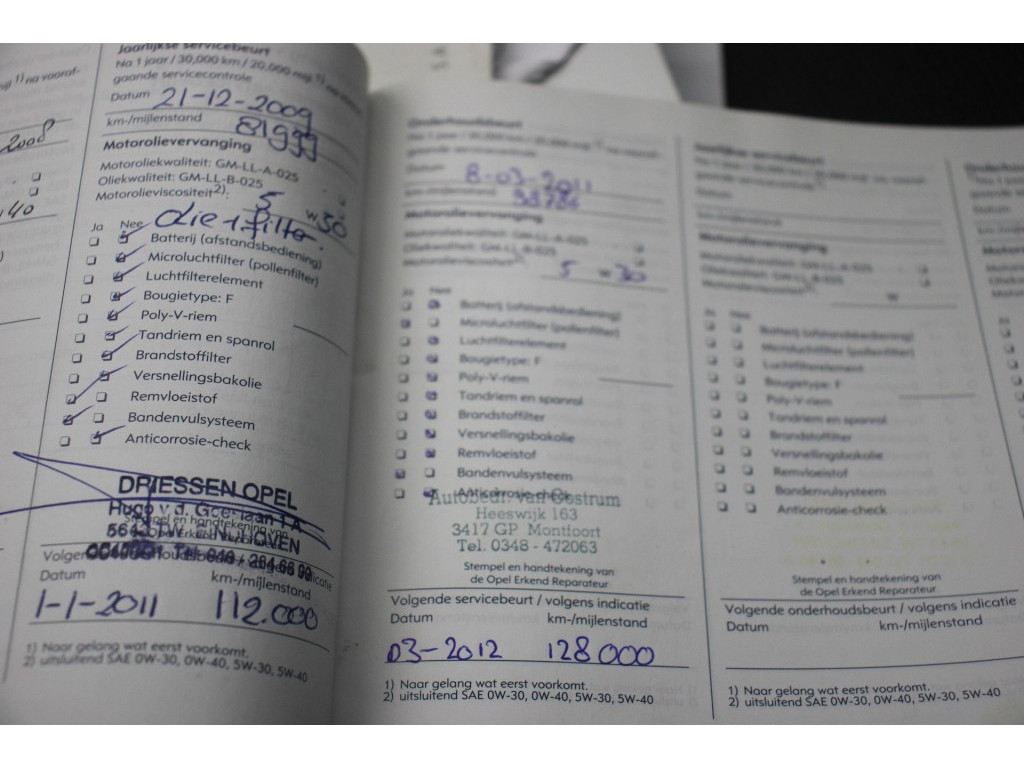 Jaarlijkse servicebeurt
Na 1 jaar / 30,000 km / 20,000 mijl 1) na vooraf-
gaande servicecontrole
Datum 21-12-2009
km-/mijlenstand
Motorolievervanging
Motoroliekwaliteit: GM-LL-A-025
Oliekwaliteit: GM-LL-B-025
Motorolieviscositeit2): 5 W 30
olie + filter.
Ja Nee
Batterij (afstandsbediening)
Microluchtfilter (pollenfilter)
Luchtfilterelement
Bougietype: F
Poly-V-riem
Tandriem en spanrol
Brandstoffilter
Versnellingsbakolie
Remvloeistof
Bandenvulsysteem
Anticorrosie-check
DRIESSEN OPEL
Hugo v.d. Goeslaan 1 A
EINDHOVEN
Stempel en handtekening van
Datum km-/mijlenstand
1-1-2011 112.000
1) Naar gelang wat eerst voorkomt.
2) uitsluitend SAE 0W-30, 0W-40, 5W-30, 5W-40
2008
Onderhoudsbeurt
Datum 8-03-2011
Motorolievervanging
Motoroliekwaliteit: GM-LL-A-025
Oliekwaliteit: GM-LL-B-025
Motorolieviscositeit2): 5 W 30
Ja Nee
Batterij (afstandsbediening)
Microluchtfilter (pollenfilter)
Luchtfilterelement
Bougietype: F
Poly-V-riem
Tandriem en spanrol
Brandstoffilter
Versnellingsbakolie
Remvloeistof
Bandenvulsysteem
Anticorrosie-check
Autobedr. van Oostrum
Heeswijk 163
3417 GP Montfoort
Tel. 0348 - 472063
Stempel en handtekening van
de Opel Erkend Reparateur
Volgende servicebeurt / volgens indicatie
Datum km-/mijlenstand
03-2012 128000
1) Naar gelang wat eerst voorkomt.
2) uitsluitend SAE 0W-30, 0W-40, 5W-30, 5W-40
Jaarlijkse servicebeurt
Datum
Motorolievervanging
Motoroliekwaliteit: GM-LL-A-025
Oliekwaliteit: GM-LL-B-025
Motorolieviscositeit2): W
Ja Nee
Batterij (afstandsbediening)
Microluchtfilter (pollenfilter)
Luchtfilterelement
Bougietype: F
Poly-V-riem
Tandriem en spanrol
Brandstoffilter
Versnellingsbakolie
Remvloeistof
Bandenvulsysteem
Anticorrosie-check
Stempel en handtekening van
de Opel Erkend Reparateur
Volgende onderhoudsbeurt / volgens indicatie
Datum km-/mijlenstand
1) Naar gelang wat eerst voorkomt.
2) uitsluitend SAE 0W-30, 0W-40, 5W-30, 5W-40